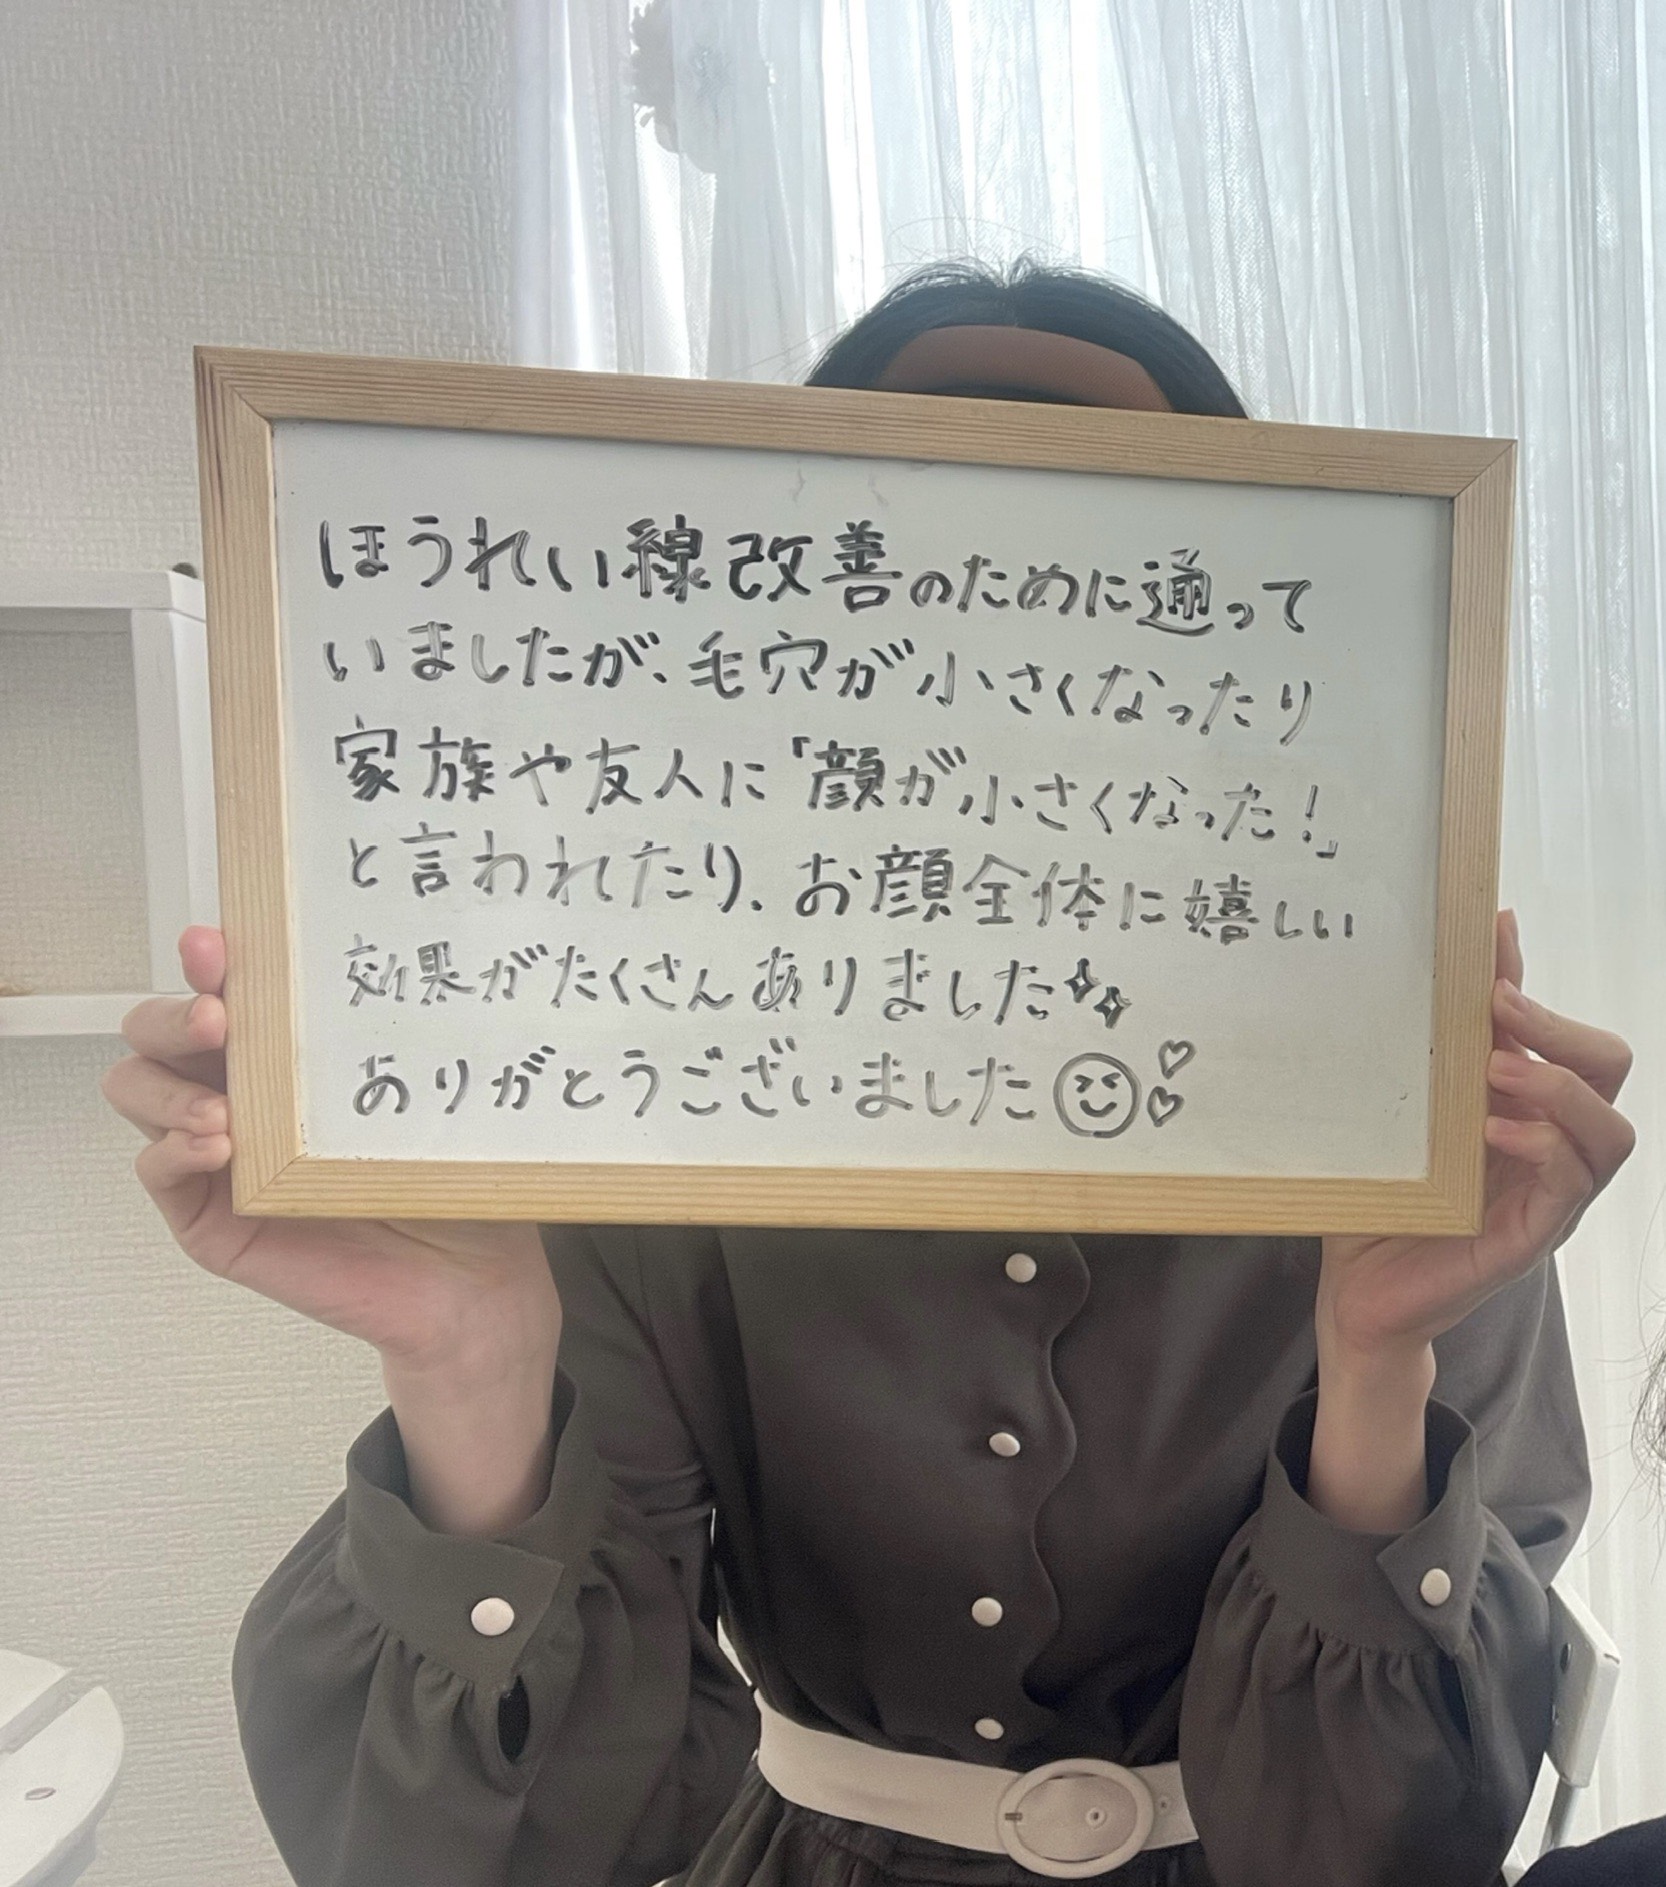 ほうれい線改善のために通って
いましたが、毛穴が小さくなったり
家族や友人に「顔が小さくなった!」
と言われたり、お顔全体に嬉しい
効果がたくさんありました
ありがとうございました